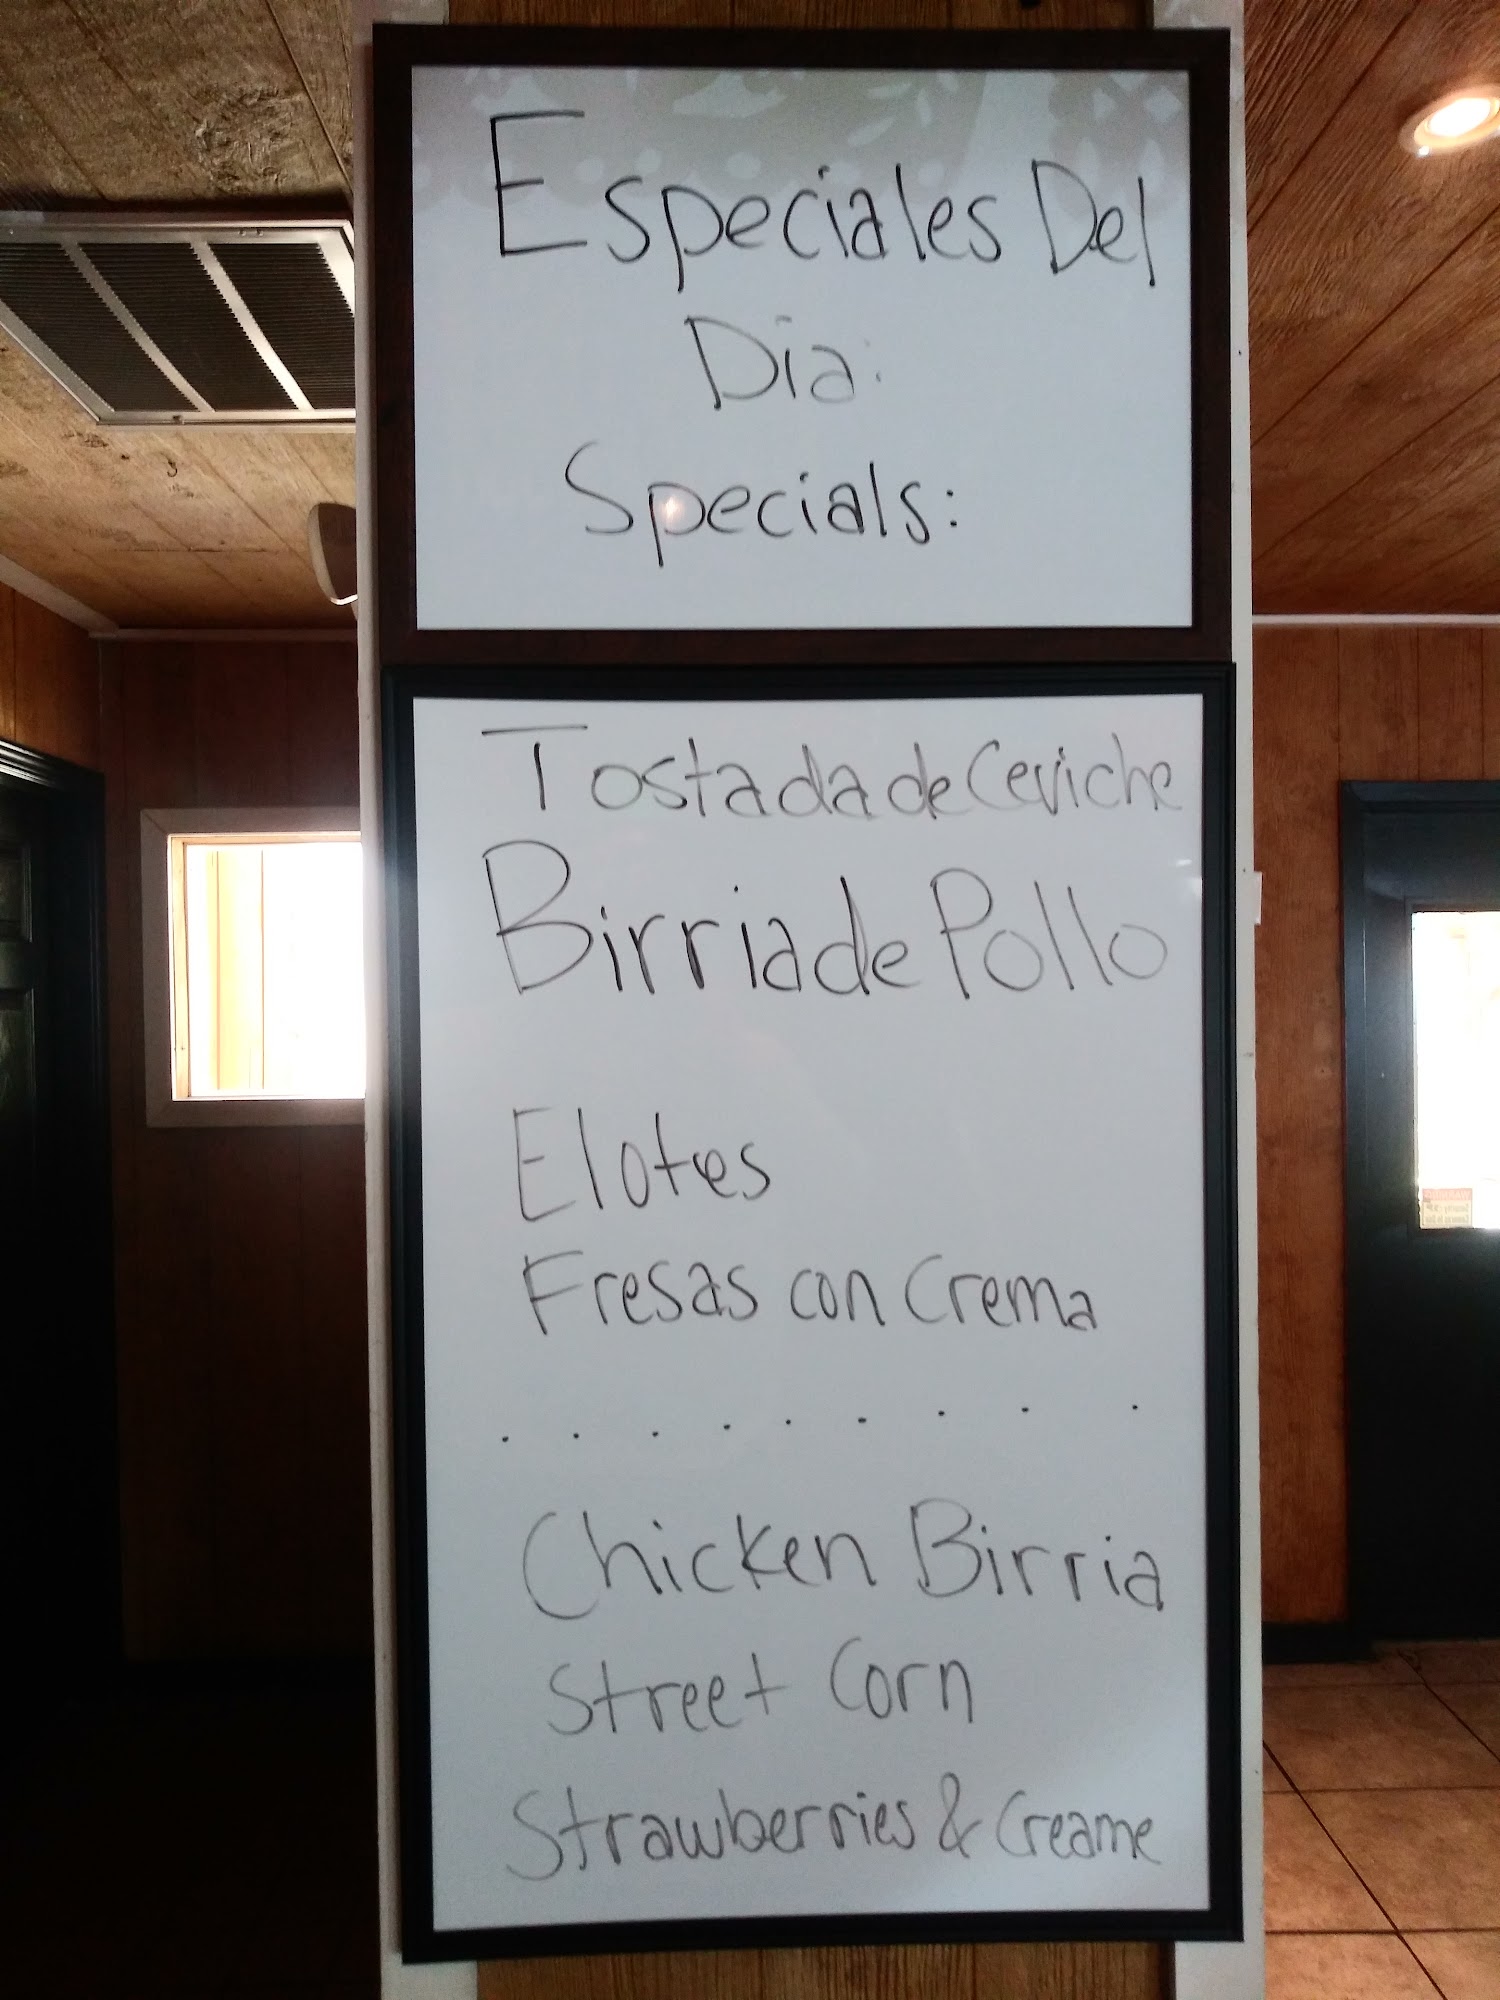 Especiales Del
Dia:
Specials:
Tostada de Ceviche
Birria de Pollo
Elotes
Fresas con Crema
. . . . . . . . .
Chicken Birria
Street Corn
Strawberries & Creame